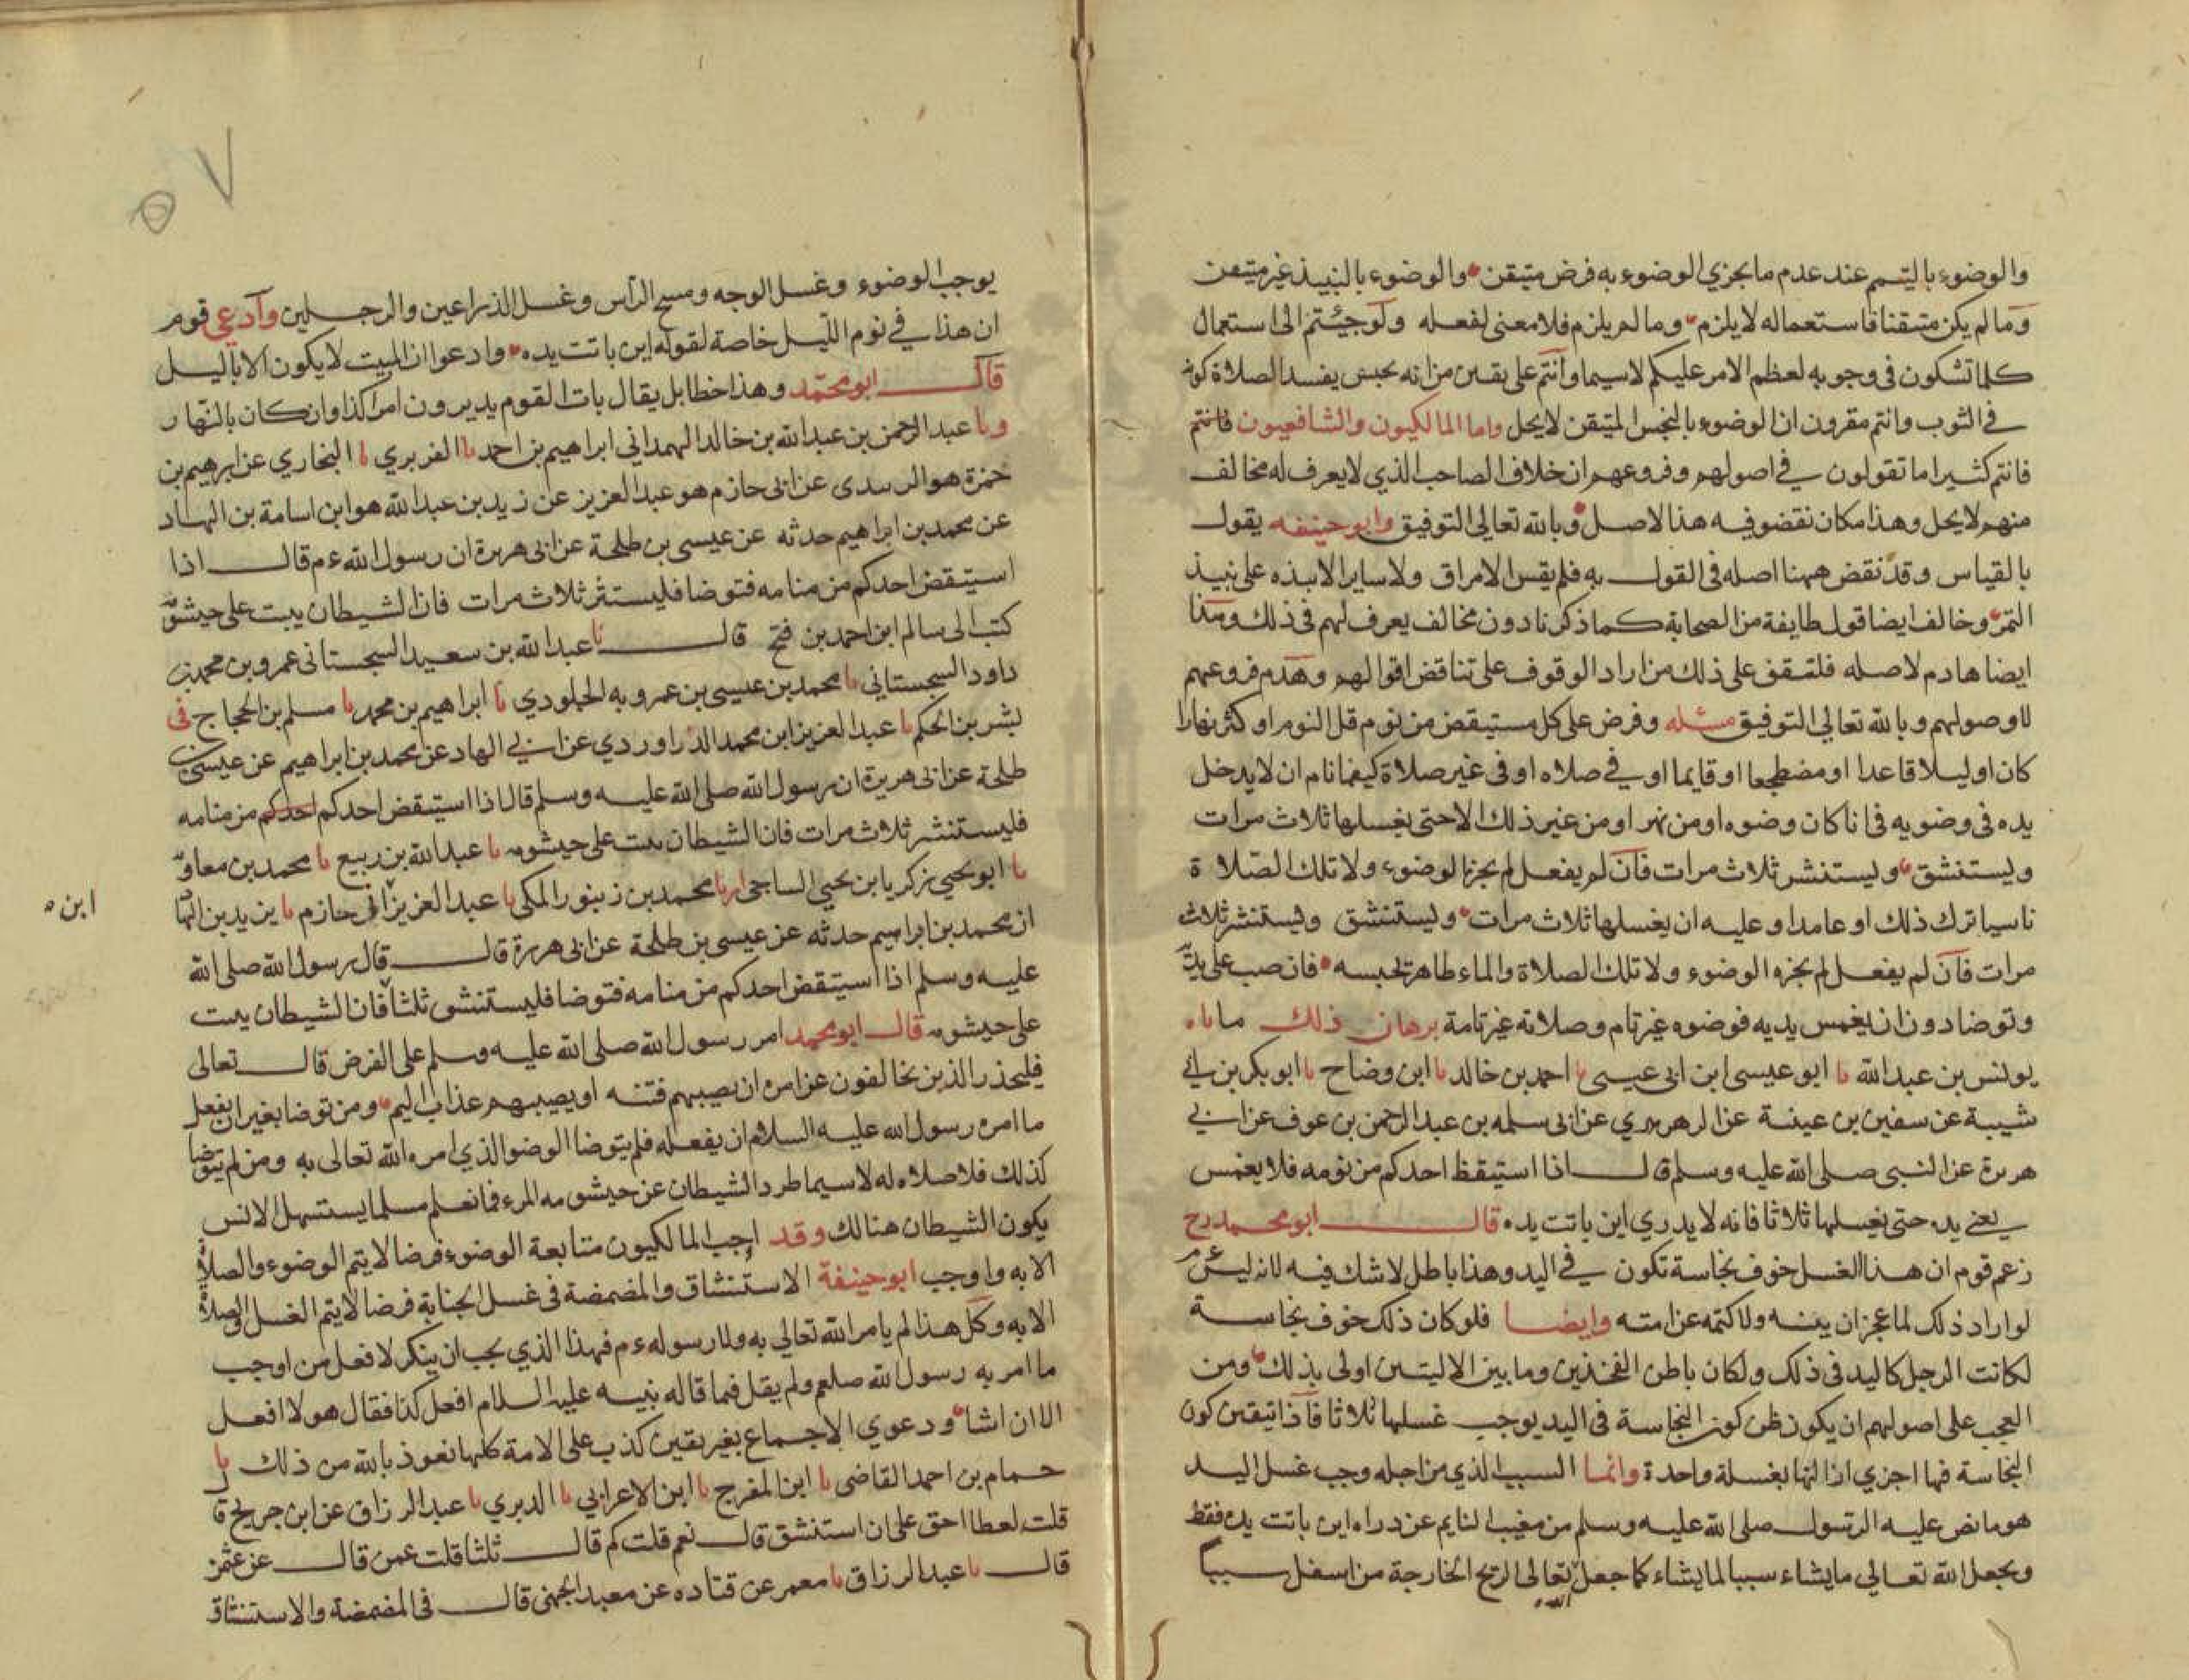 والوضوء بالتيمم عند عدم ما يجزي الوضوء به فرض متيقن والوضوء بالنبيذ غير متيقن
وما لم يكن متيقنا فاستعماله لا يلزم وما لم يلزم فلا معنى لفعله ولو جيئتم الى استعمال
كلما تشكون في وجوبه لعظم الامر عليكم لا سيما وانتم على يقين من انه نجس يفسد الصلاة كونه
في الثوب وانتم مقرون ان الوضوء بالنجس المتيقن لا يحل واما المالكيون والشافعيون فانتم
فانتم كثيرا ما تقولون في اصولهم وفروعهم ان خلاف الصاحب الذي لا يعرف له مخالف
منهم لا يحل وهذا مكان نقضو فيه هذا الاصل وبالله تعالى التوفيق وابو حنيفه يقول
بالقياس وقد نقض ههنا اصله في القول به فلم يقس الامراق ولا ساير الانبذه على نبيذ
التمر وخالف ايضا قول طايفة من الصحابة كما ذكرنا دون مخالف يعرف لهم في ذلك وهذا
ايضا هادم لاصله فلتقف على ذلك من اراد الوقوف على تناقض اقوالهم وهدم فروعهم
لاوصولهم وبالله تعالى التوفيق مسئله وفرض على كل مستيقض من نوم قل النوم او كثر نهارا
كان او ليلا قاعدا او مضطجعا او قايما او في صلاه او في غير صلاة كيفما نام ان لا يدخل
يده في وضويه في انا كان وضوه او من نهر او من غير ذلك الا حتى يغسلها ثلاث مرات
ويستنشق وليستنشر ثلاث مرات فان لم يفعل لم يجزه الوضوء ولا تلك الصلا ة
ناسيا ترك ذلك او عامدا وعليه ان يغسلها ثلاث مرات وليستنشق وليستنشر ثلاث
مرات فان لم يفعل لم يجزه الوضوء ولا تلك الصلاة والماء طاهر بحبسه فان صب على يديه
وتوضا دون ان يغمس يديه فوضوه غير تام وصلاته غير تامة برهان ذلك ما ناه
يونس بن عبد الله نا ابو عيسى ابن ابي عيسى نا احمد بن خالد نا ابن وضاح نا ابو بكر بن ابي
شيبة عن سفين بن عينة عن الزهري عن ابي سلمه بن عبد الرحمن بن عوف عن ابي
هريرة عن النبي صلى الله عليه وسلم قال اذا استيقظ احدكم من نومه فلا يغمس
يعني يده حتى يغسلها ثلاثا فانه لا يدري اين باتت يده قال ابو محمد رح
زعم قوم ان هذا الغسل خوف نجاسة تكون في اليد وهذا باطل لا شك فيه لانه ليش عم
لو اراد ذلك لما عجز ان يبينه ولا كتمه عن امته وايضا فلو كان ذلك خوف نجاسة
لكانت الرجل كاليد في ذلك ولكان باطن الفخذين وما بين الاليتين اولى بذلك ومن
العجب على اصولهم ان يكون ظن كون النجاسة في اليد يوجب غسلها ثلاثا فاذا تيقن كون
النجاسة فيها اجزي ازالتها بغسلة واحدة وانما السبب الذي من اجله وجب غسل اليد
هو ما نص عليه الرسول صلى الله عليه وسلم من مغيب النايم عن دراه اين باتت يده فقط
ويجعل الله تعالى ما يشاء سببا لما يشاء كما جعل الله تعالى الريح الخارجة من اسفل سببا
يوجب الوضوء وغسل الوجه ومسح الراس وغسل الذراعين والرجلين وادعى قوم
ان هذا في نوم الليل خاصة لقوله اين باتت يده وادعوا ان المبيت لا يكون الا بالليل
قال ابو محمد وهذا خطا بل يقال بات القوم يديرون امرا كذا وان كان بالنهار
ونا عبد الرحمن بن عبد الله بن خالد الهمداني ابراهيم بن احمد نا الفربري نا البخاري عن ابرهيم بن
حمزة هو الرسدى عن ابي حازم هو عبد العزيز عن زيد بن عبد الله هو ابن اسامة بن الهاد
عن محمد بن ابراهيم حدثه عن عيسى بن طلحة عن ابي هريرة ان رسول الله ء م قال اذا
استيقض احدكم من منامه فتوضا فليستنثر ثلاث مرات فان الشيطان يبت على خيشومه
كتب الى سالم ابن احمد بن فتح قال نا عبد الله بن سعيد السجستاني عمرو بن محمد بن
داود السجستاني نا محمد بن عيسى بن عمرويه الجلودي نا ابراهيم بن محمد نا مسلم بن الحجاج في
بشر بن الحكم نا عبد العزيز ابن محمد الدراوردي عن ابن الهاد عن محمد بن ابراهيم عن عيسى بن
طلحة عن ابي هريرة ان رسول الله صلى الله عليه وسلم قال اذا استيقض احدكم احدكم من منامه
فليستنشر ثلاث مرات فان الشيطان يبت على خيشومه نا عبد الله بن ربيع نا محمد بن معاويه
نا ابو يحيى زكريا ابن يحيى الساجي انا محمد بن زنبور المكي نا عبد العزيز ابي حازم نا يزيد بن الهاد
ان محمد بن ابراهيم حدثه عن عيسى بن طلحة عن ابي هريرة قال قال رسول الله صلى الله
عليه وسلم اذا استيقض احدكم من منامه فتوضا فليستنشق ثلثا فان الشيطان يبت
على خيشومه قال ابو محمد امر رسول الله صلى الله عليه وسلم على الفرض قال تعالى
فليحذر الذين يخالفون عن امره ان تصيبهم فتنه او يصيبهم عذاب اليم ومن توضا بغير ان يفعل
ما امره رسول الله عليه السلام ان يفعله فلم يتوضا الوضو الذي امره الله تعالى به ومن لم يتوضا
كذلك فلا صلاه له لا سيما طرد الشيطان عن خيشومه المرء فما نعلم مسلما يستسهل الانس
يكون الشيطان هنالك وقد اوجب المالكيون متابعة الوضوء فرضا لا يتم الوضوء والصلاة
الا به واوجب ابو حنيفة الاستنشاق والمضمضة في غسل الجنابة فرضا لا يتم الغسل والصلاة
الا به وكل هذا لم يامر الله تعالى به ولا رسوله ء م فهذا الذي يجب ان ينكر لا فعل من اوجب
ما امر به رسول الله صلعم ولم يقل فيما قاله نبيه عليه السلام افعل كذا فقال هو لا افعل
الا ان اشا ودعوي الاجماع بغير يقين كذب على الامة كلها نعوذ بالله من ذلك نا
حمام بن احمد القاضى نا ابن المفرج نا ابن الاعرابي نا الدبري نا عبد الرزاق عن ابن جريج قا
قلت لعطا احق على ان استنشق قال نعم قلت كم قال ثلثا قلت عمن قال عن عثمن
قال نا عبد الرزاق نا معمر عن قتاده عن معبد الجهني قال في المضمضة والاستنشاق
ابن ه
٧٥